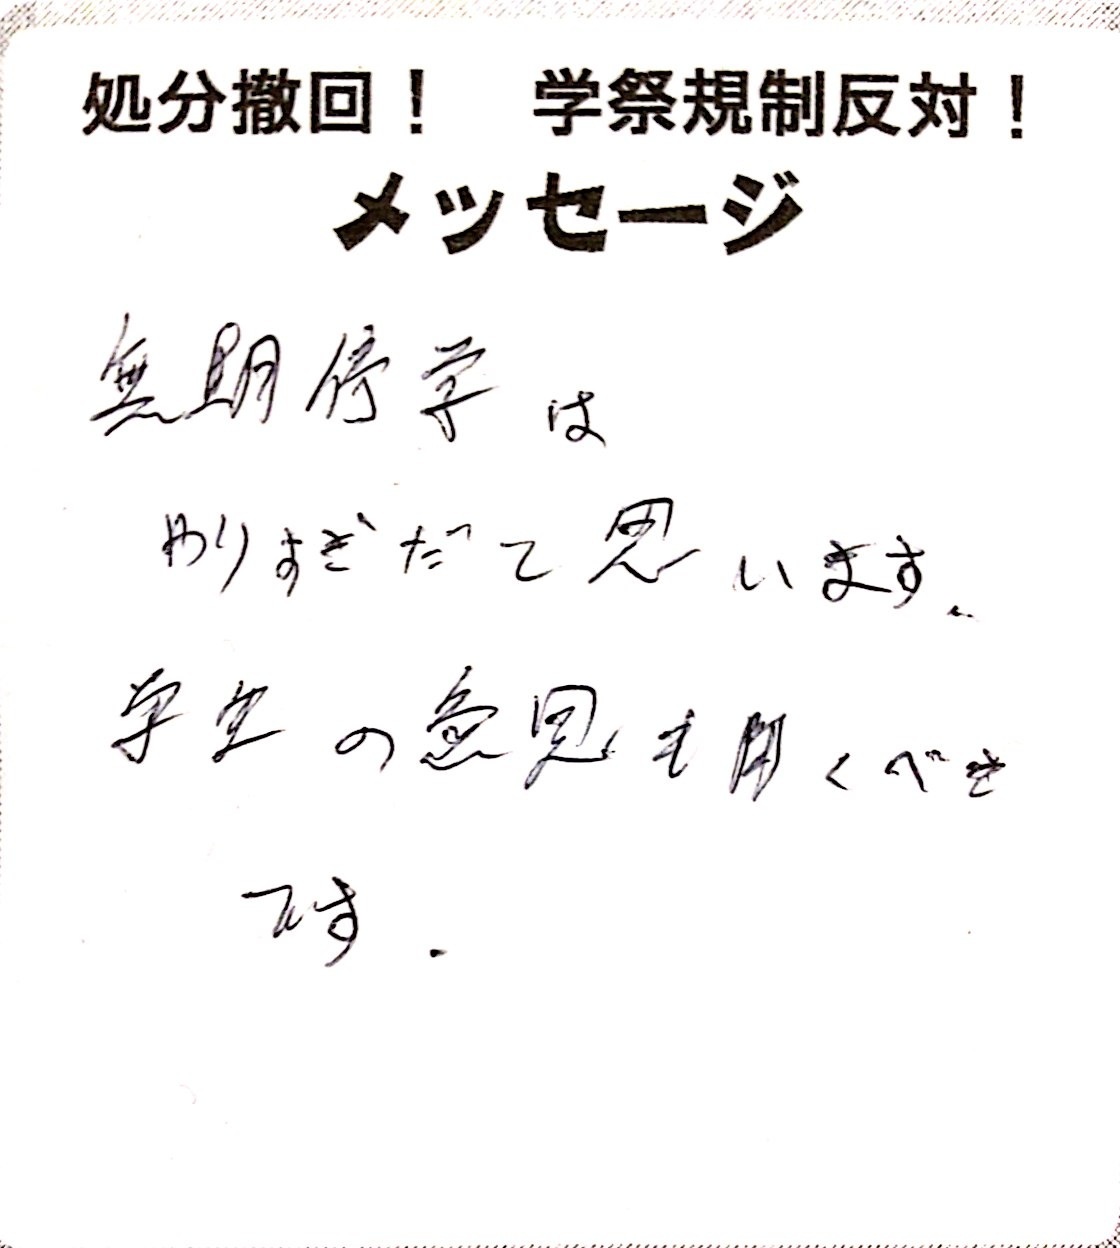 処分撤回！　学祭規制反対！
メッセージ
無期停学は
やりすぎだって思います。
学生の意見も聞くべき
です.